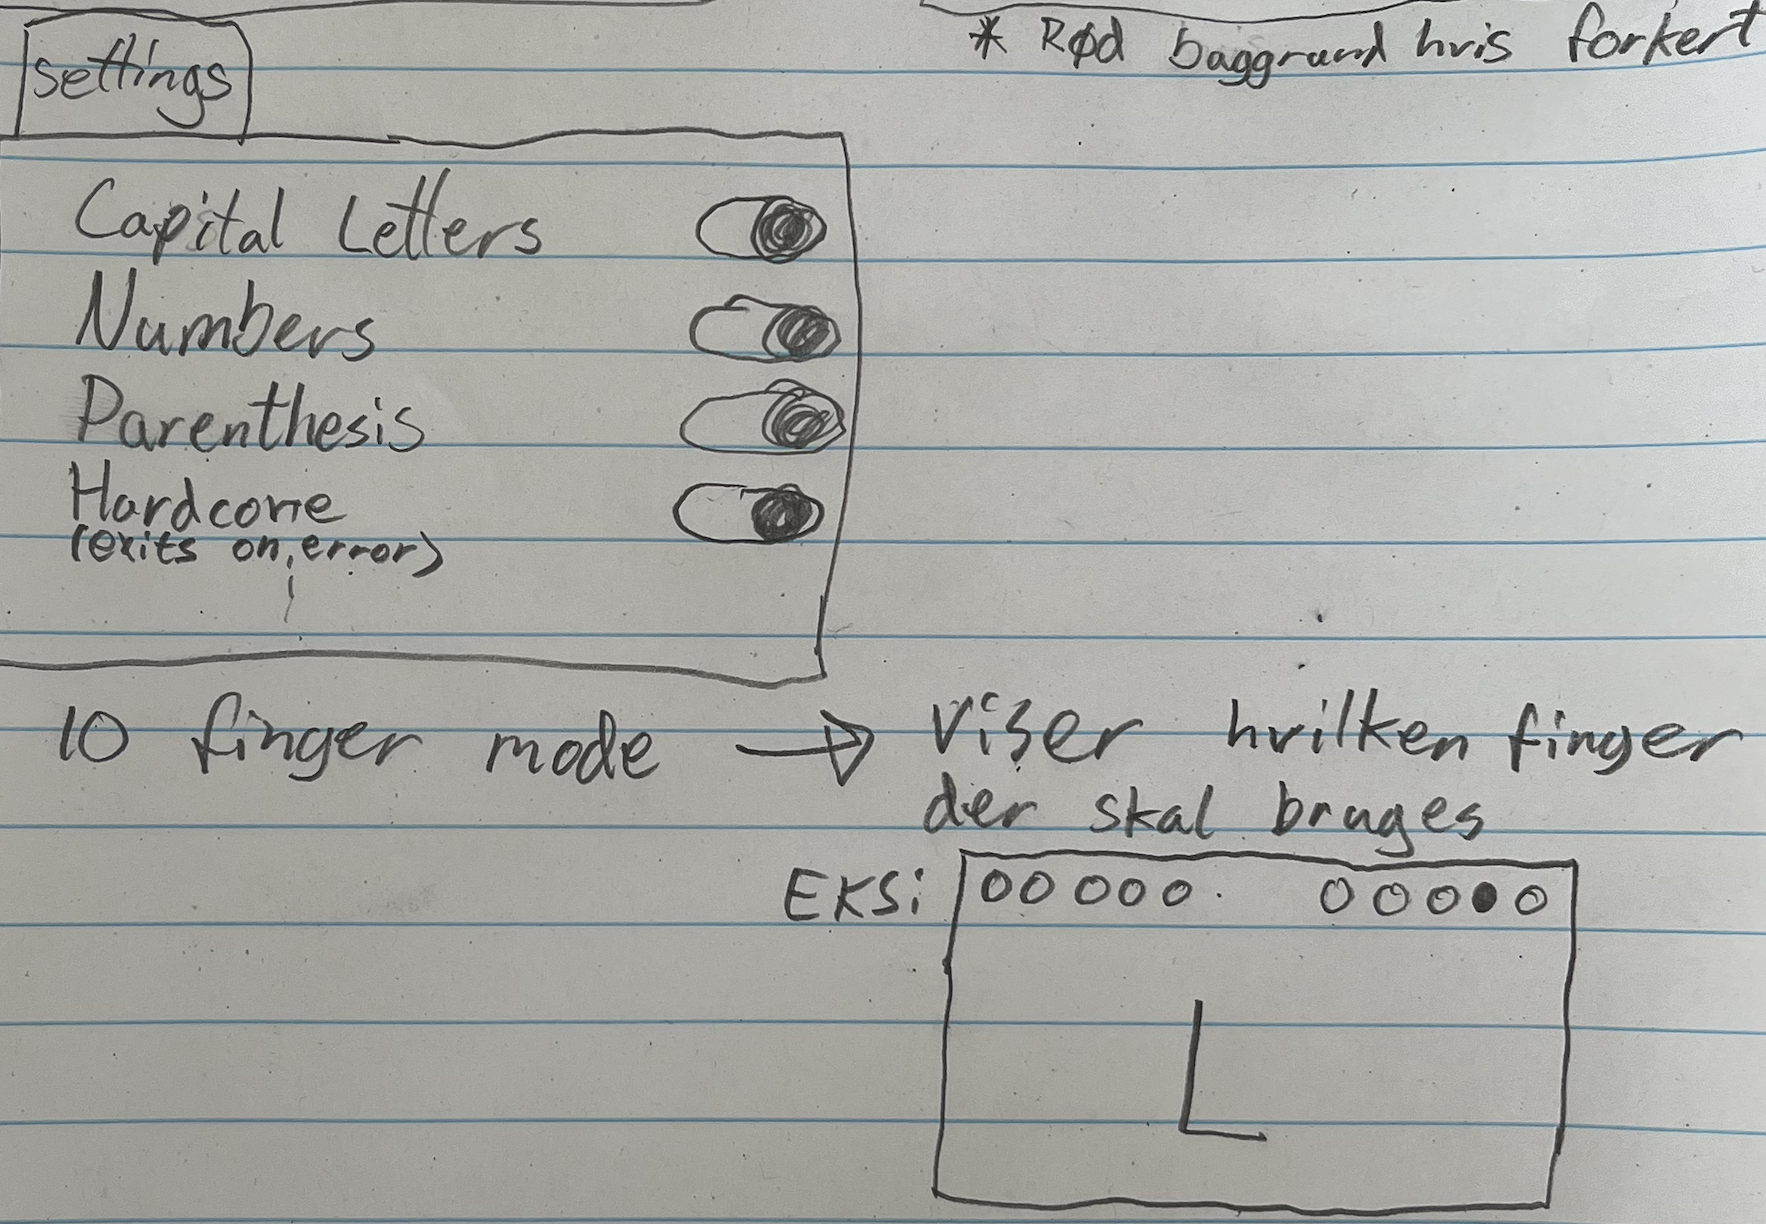 * Rød baggrund hvis forkert
settings
Capital Letters
Numbers
Parenthesis
Hardcore
(exits on error)
10 finger mode → Viser hvilken finger
der skal bruges
EKS:
L